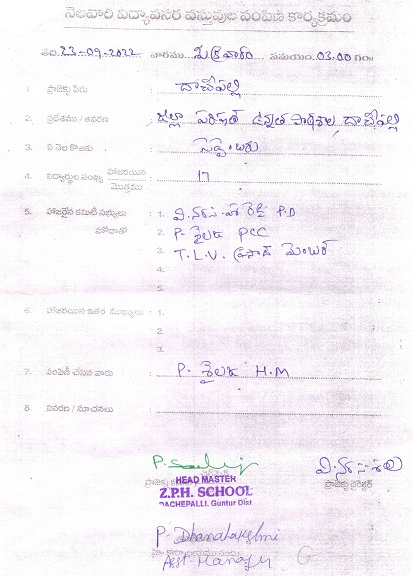 నెలవారీ విద్యావసర వస్తువుల పంపిణీ కార్యక్రమం
తేది 23-09-2022 వారము శుక్రవారం సమయం 03.00 గం
1. ప్రాజెక్టు పేరు దాచేపల్లి
2. ప్రదేశము / ఆవరణ జిల్లా పరిషత్ ఉన్నత పాఠశాల, దాచేపల్లి
3. ఏ నెల కొరకు సెప్టెంబరు
4. విద్యార్థుల సంఖ్య హాజరయిన 17
మొత్తము
5. హాజరైన కమిటీ సభ్యులు : 1. వి.నరసింహారెడ్డి P.D
హోదాతో 2. P. శైలజ PCC
3. T.L.V. ప్రసాద్ మెంబర్
4.
5.
6. హాజరయిన ఇతర ముఖ్యులు : 1.
2.
3.
7. పంపిణీ చేసిన వారు P. శైలజ H.M
8. వివరణ / సూచనలు
HEAD MASTER
ప్రాజెక్టు డైరెక్టర్
Z.P.H. SCHOOL
DACHEPALLI, Guntur Dist
P. Dhanalakshmi
Asst. Manager